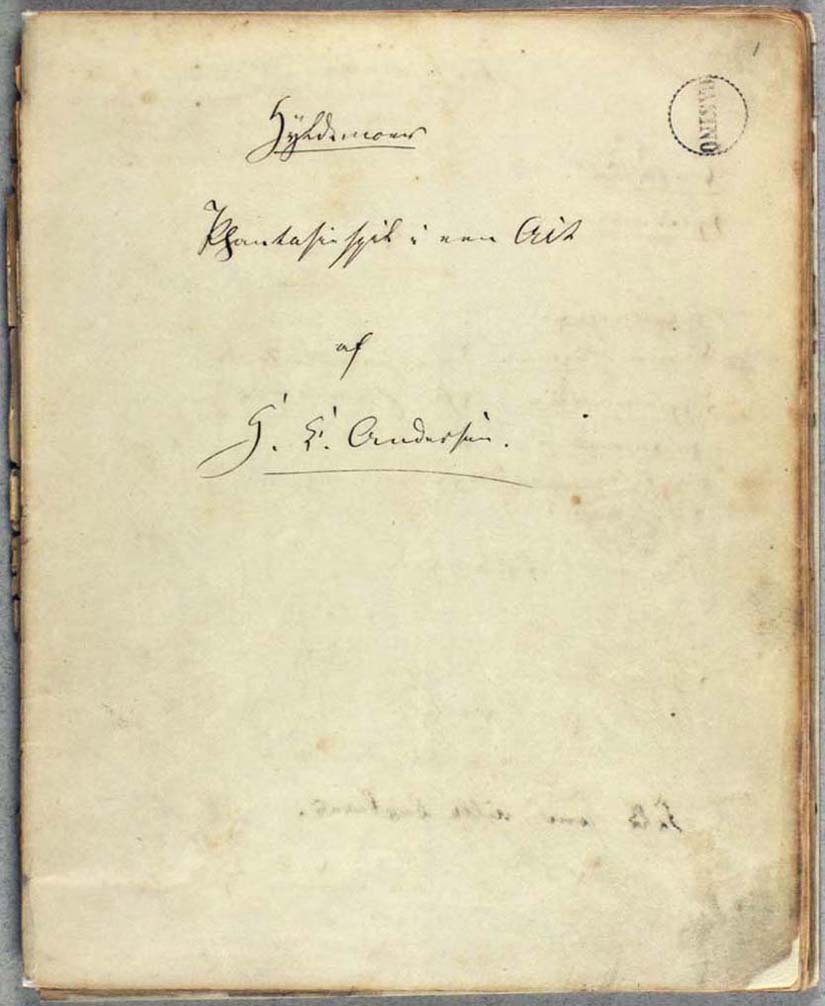 1
Hyldemoer
Phantasiespil i een Act
af
H. C. Andersen.